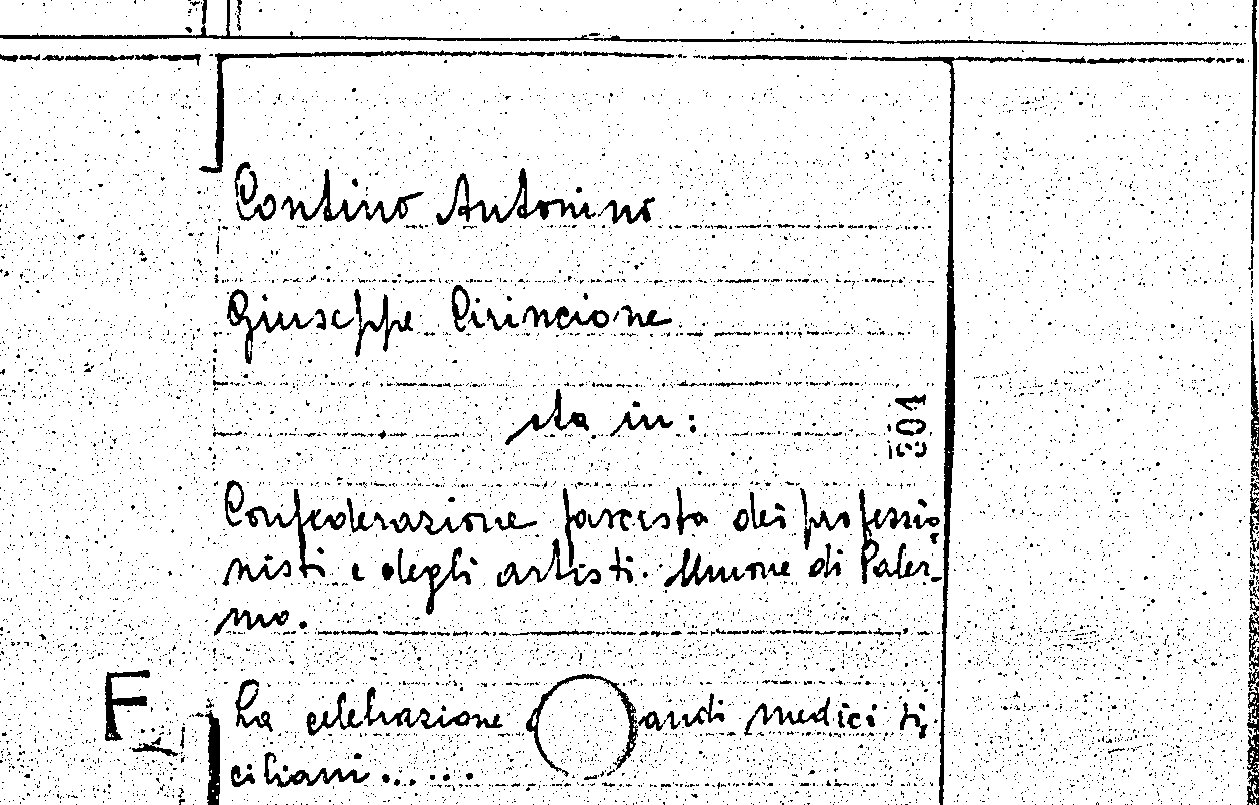 Contino Antonino
Giuseppe Cirincione
sta in:
301
Confederazione fascista dei professio-
nisti e degli artisti. Unione di Paler-
mo.
F
La celebrazione andi medici si-
ciliani......